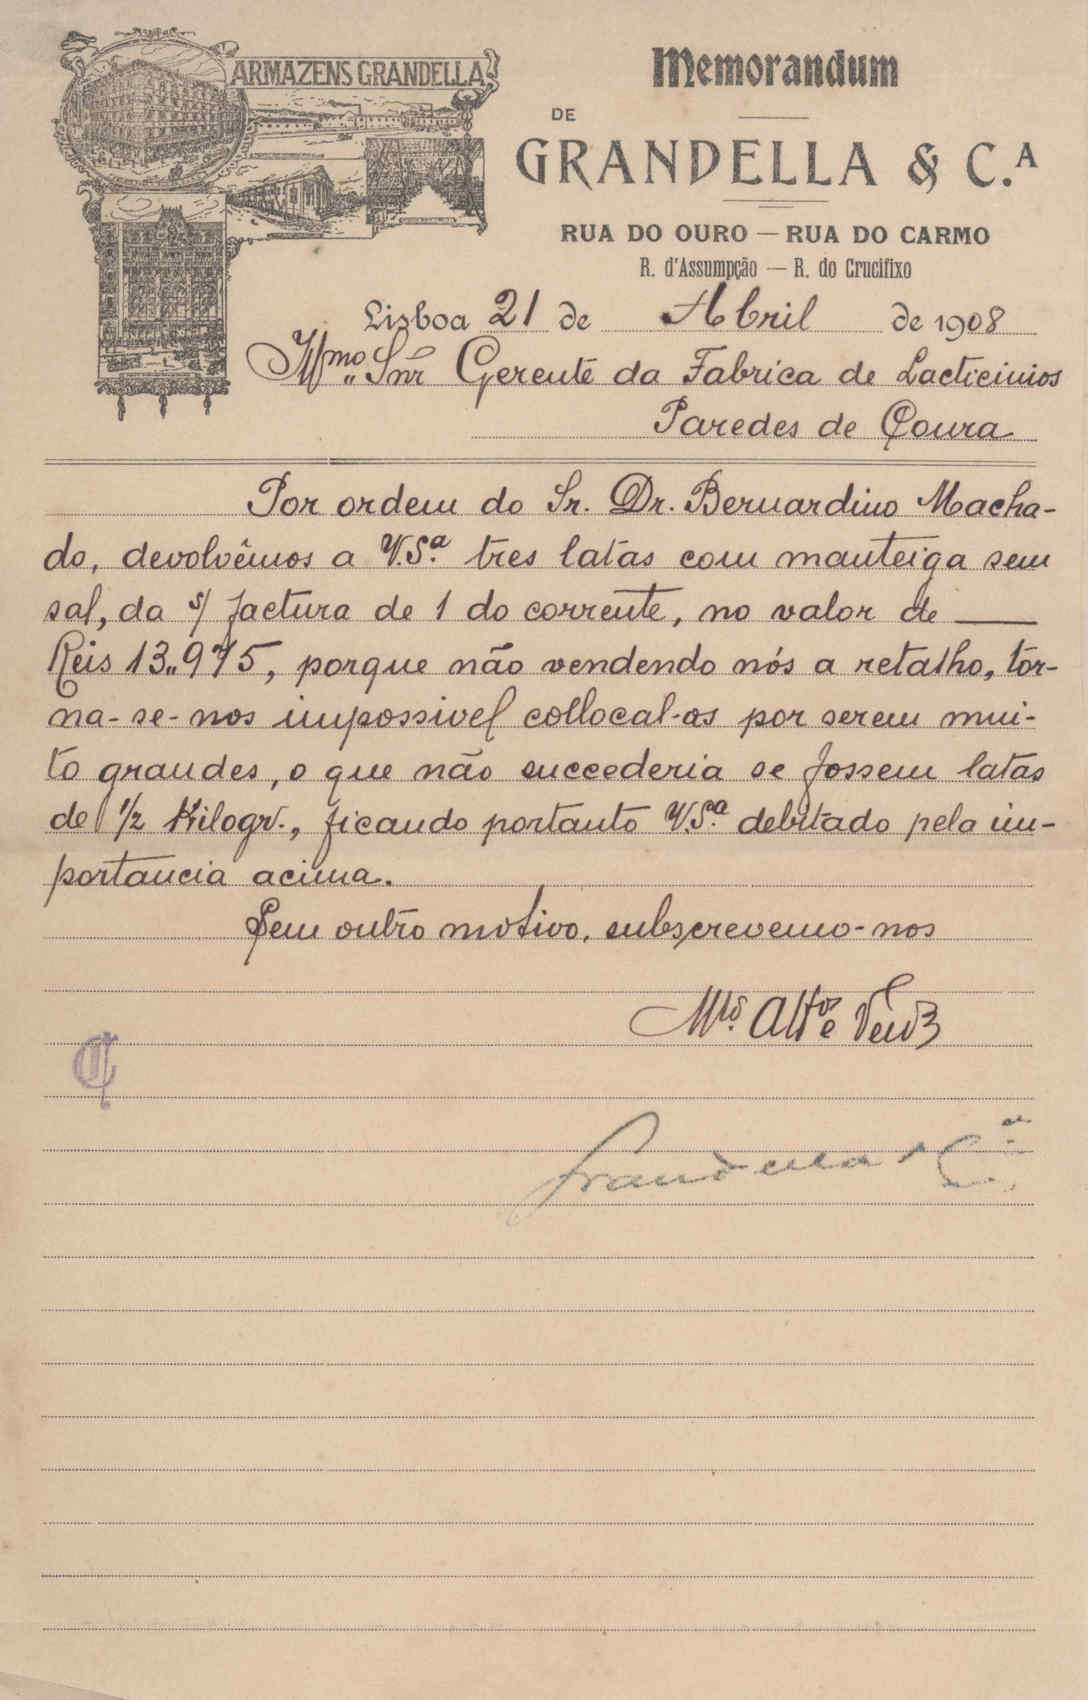 ARMAZENS GRANDELLA
Memorandum
DE
GRANDELLA & C.A
RUA DO OURO — RUA DO CARMO
R. d'Assumpção — R. do Crucifixo
Lisboa 21 de Abril de 1908
Illmo Snr Gerente da Fabrica de Lacticinios
Paredes de Coura
Por ordem do Sr. Dr. Bernardino Macha-
do, devolvêmos a V.S.a tres latas com manteiga sem
sal, da s/ factura de 1 do corrente, no valor de —
Reis 13..975, porque não vendendo nós a retalho, tor-
na-se-nos impossivel collocal-as por serem mui-
to grandes, o que não succederia se fossem latas
de 1/2 Kilogr., ficando portanto V.S.a debitado pela im-
portancia acima.
Sem outro motivo, subscrevemo-nos
Mto. Attos e Venres
Grandella & C.ia